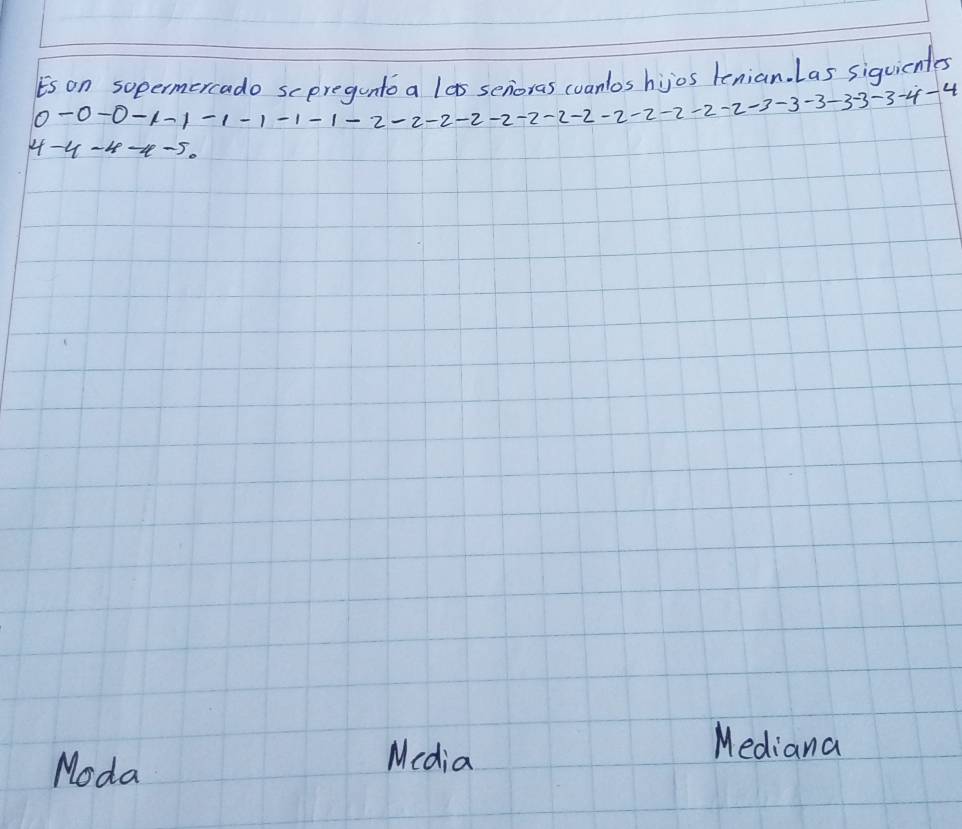 Es on sopermercado se preguntó a las señoras cuantos hijos tenian. Las siguientes
0-0-0-1-1-1-1-1-1-2-2-2-2-2-2-2-2-2-2-2-2-2-3-3-3-3-3-3-4-4
4-4-4-4-5.
Moda Media Mediana